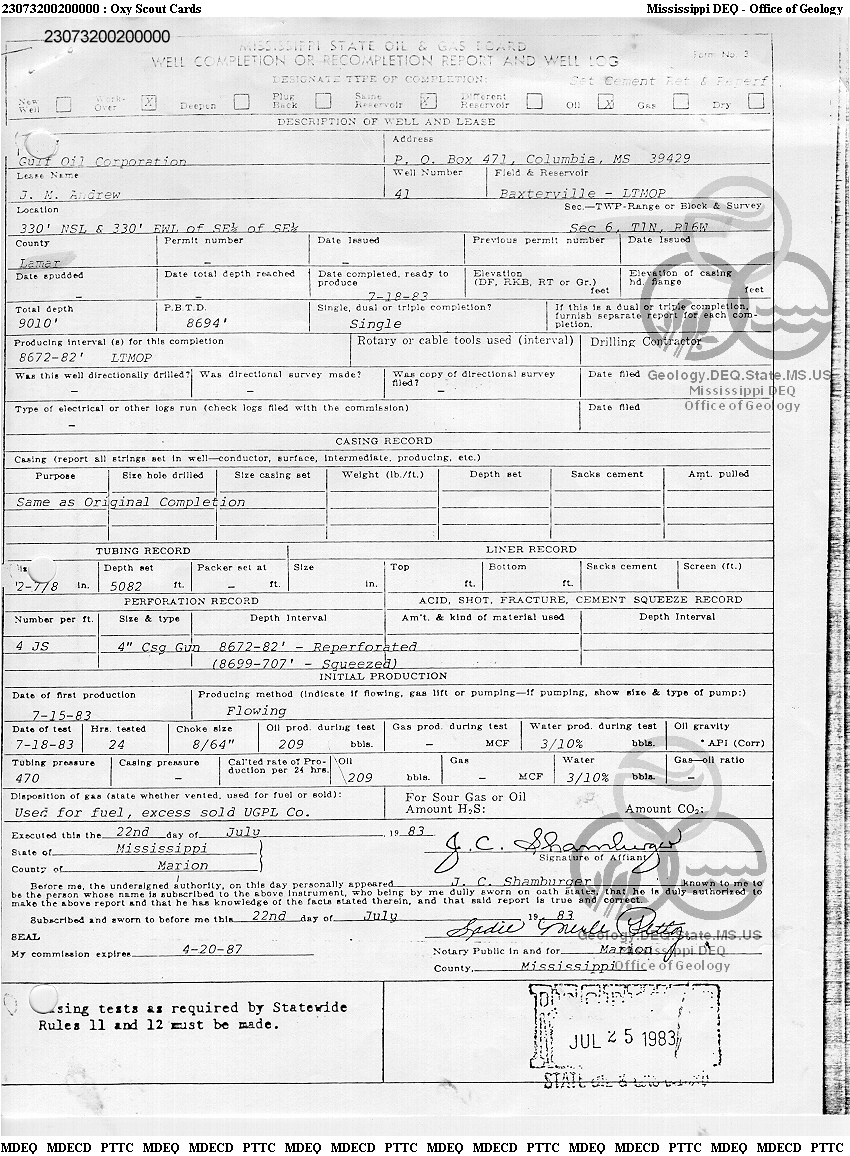 23073200200000 : Oxy Scout Cards Mississippi DEQ - Office of Geology
23073200200000
MISSISSIPPI STATE OIL & GAS BOARD
WELL COMPLETION OR RECOMPLETION REPORT AND WELL LOG Form No. 3
DESIGNATE TYPE OF COMPLETION: Set Cement Ret & Reperf
New Well Work-Over X Deepen Plug Back Same Reservoir X Different Reservoir Oil X Gas Dry
DESCRIPTION OF WELL AND LEASE
Address
Gulf Oil Corporation P. O. Box 471, Columbia, MS 39429
Lease Name Well Number Field & Reservoir
J. M. Andrew 41 Baxterville - LTMOP
Location Sec.—TWP-Range or Block & Survey
330' NSL & 330' EWL of SE¼ of SE¼ Sec 6, T1N, R16W
County Permit number Date Issued Previous permit number Date Issued
Lamar - -
Date spudded Date total depth reached Date completed, ready to produce Elevation (DF, RKB, RT or Gr.) feet Elevation of casing hd. flange feet
- - 7-18-83
Total depth P.B.T.D. Single, dual or triple completion? If this is a dual or triple completion, furnish separate report for each completion.
9010' 8694' Single
Producing interval (s) for this completion Rotary or cable tools used (interval) Drilling Contractor
8672-82' LTMOP
Was this well directionally drilled? Was directional survey made? Was copy of directional survey filed? Date filed
- - -
Geology.DEQ.State.MS.US
Mississippi DEQ
Office of Geology
Type of electrical or other logs run (check logs filed with the commission) Date filed
-
CASING RECORD
Casing (report all strings set in well—conductor, surface, intermediate, producing, etc.)
Purpose Size hole drilled Size casing set Weight (lb./ft.) Depth set Sacks cement Amt. pulled
Same as Original Completion
TUBING RECORD LINER RECORD
Depth set Packer set at Size Top Bottom Sacks cement Screen (ft.)
2-7/8 in. 5082 ft. - ft. in. ft. ft.
PERFORATION RECORD ACID, SHOT, FRACTURE, CEMENT SQUEEZE RECORD
Number per ft. Size & type Depth Interval Am't. & kind of material used Depth Interval
4 JS 4" Csg Gun 8672-82' - Reperforated
(8699-707' - Squeezed)
INITIAL PRODUCTION
Date of first production Producing method (indicate if flowing, gas lift or pumping—if pumping, show size & type of pump:)
7-15-83 Flowing
Date of test Hrs. tested Choke size Oil prod. during test Gas prod. during test Water prod. during test Oil gravity
7-18-83 24 8/64" 209 bbls. - MCF 3/10% bbls. ° API (Corr)
Tubing pressure Casing pressure Cal'ted rate of Production per 24 hrs. Oil Gas Water Gas—oil ratio
470 - 209 bbls. - MCF 3/10% bbls. -
Disposition of gas (state whether vented, used for fuel or sold): For Sour Gas or Oil
Used for fuel, excess sold UGPL Co. Amount H2S: Amount CO2:
Executed this the 22nd day of July , 19 83
State of Mississippi J. C. Shamburger
Signature of Affiant
County of Marion
Before me, the undersigned authority, on this day personally appeared J. C. Shamburger known to me to
be the person whose name is subscribed to the above instrument, who being by me duly sworn on oath states, that he is duly authorized to
make the above report and that he has knowledge of the facts stated therein, and that said report is true and correct.
Subscribed and sworn to before me this 22nd day of July 19 83
SEAL Sadie Merle Petty
Geology.DEQ.State.MS.US
My commission expires 4-20-87 Notary Public in and for Marion
Mississippi DEQ
County, Mississippi
Office of Geology
Casing tests as required by Statewide
Rules 11 and 12 must be made.
JUL 25 1983
STATE OIL &
MDEQ MDECD PTTC MDEQ MDECD PTTC MDEQ MDECD PTTC MDEQ MDECD PTTC MDEQ MDECD PTTC MDEQ MDECD PTTC